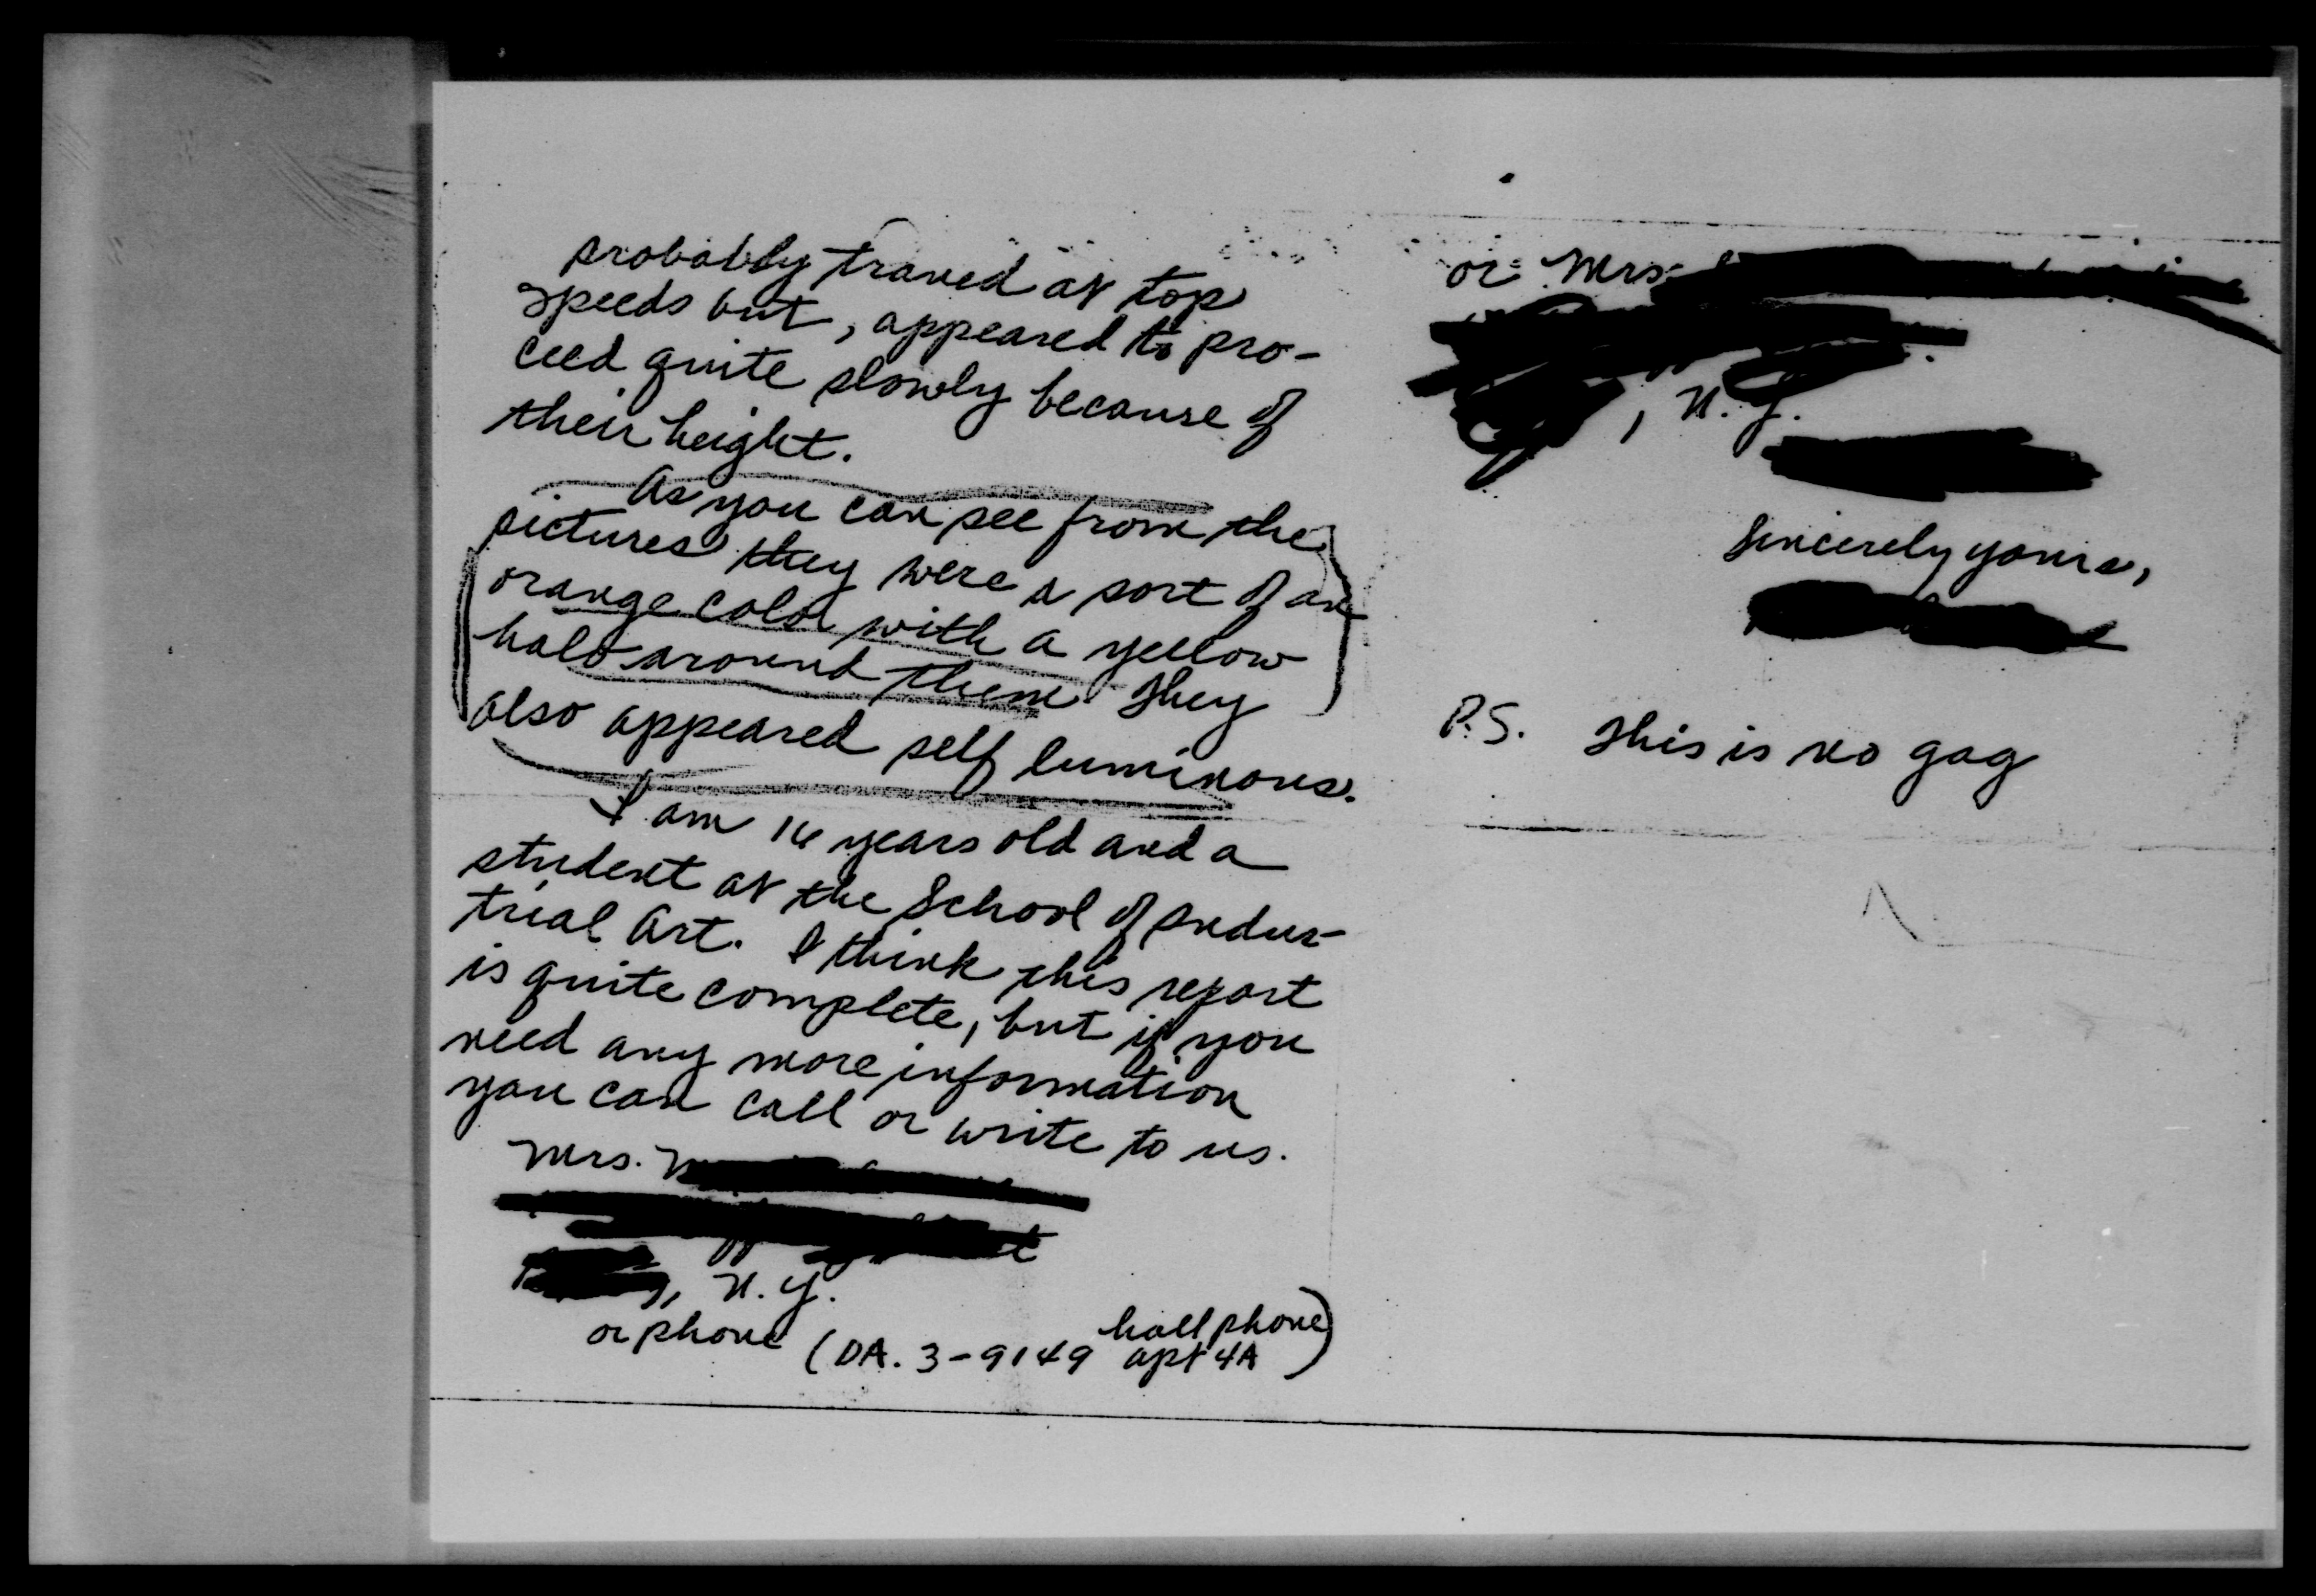 probably traved at top
speeds but, appeared to pro-
ceed quite slowly because of
their height.
As you can see from the
pictures they were a sort of an
orange color with a yellow
halo around them. They
also appeared self luminous.
I am 16 years old and a
student at the School of Indus-
trial Art. I think this report
is quite complete, but if you
need any more information
you can call or write to us.
Mrs.
, N.Y.
or phone (DA. 3-9149 hall phone
apt 4A)
or Mrs.
, N.Y.
Sincerely yours,
P.S. This is no gag